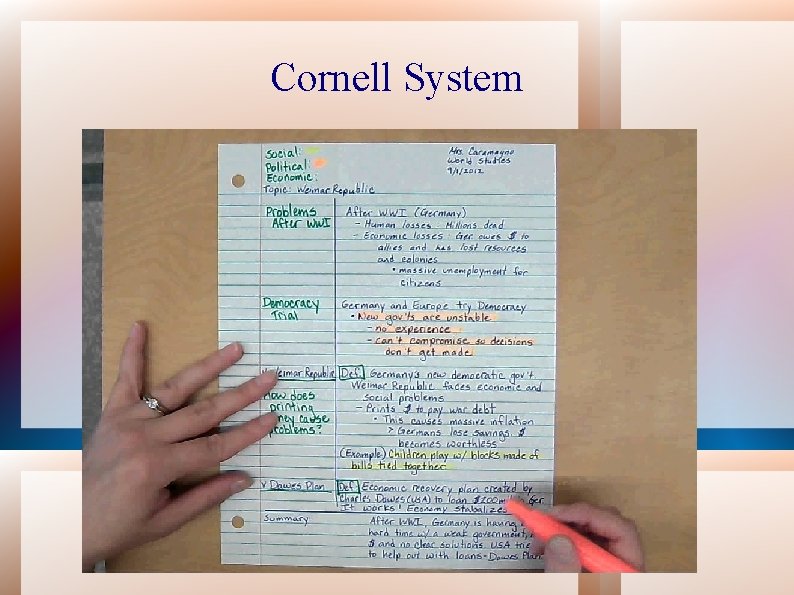 Cornell System
Social:
Political:
Economic:
Mrs. Caramagno
World Studies
9/1/2012
Topic: Weimar Republic
Problems
After WWI
After WWI (Germany)
- Human losses: Millions dead
- Economic losses: Ger owes $ to
allies and has lost resources
and colonies
• massive unemployment for
citizens
Democracy
Trial
Germany and Europe try Democracy
• New gov'ts are unstable
- no experience
- can't compromise so decisions
don't get made.
Weimar Republic
How does
printing
cause
problems?
Def. Germany's new democratic gov't
Weimar Republic faces economic and
social problems
- Prints $ to pay war debt
• This causes massive inflation
> Germans lose savings. $
becomes worthless
(Example) Children play w/ blocks made of
bills tied together
V Dawes Plan
Def. Economic recovery plan created by
Charles Dawes (USA) to loan $200 Ger.
It works! Economy stabalizes
Summary
After WWI, Germany is having
hard time w/ a weak government,
$ and no clear solutions. USA
to help out with loans - Dawes Plan